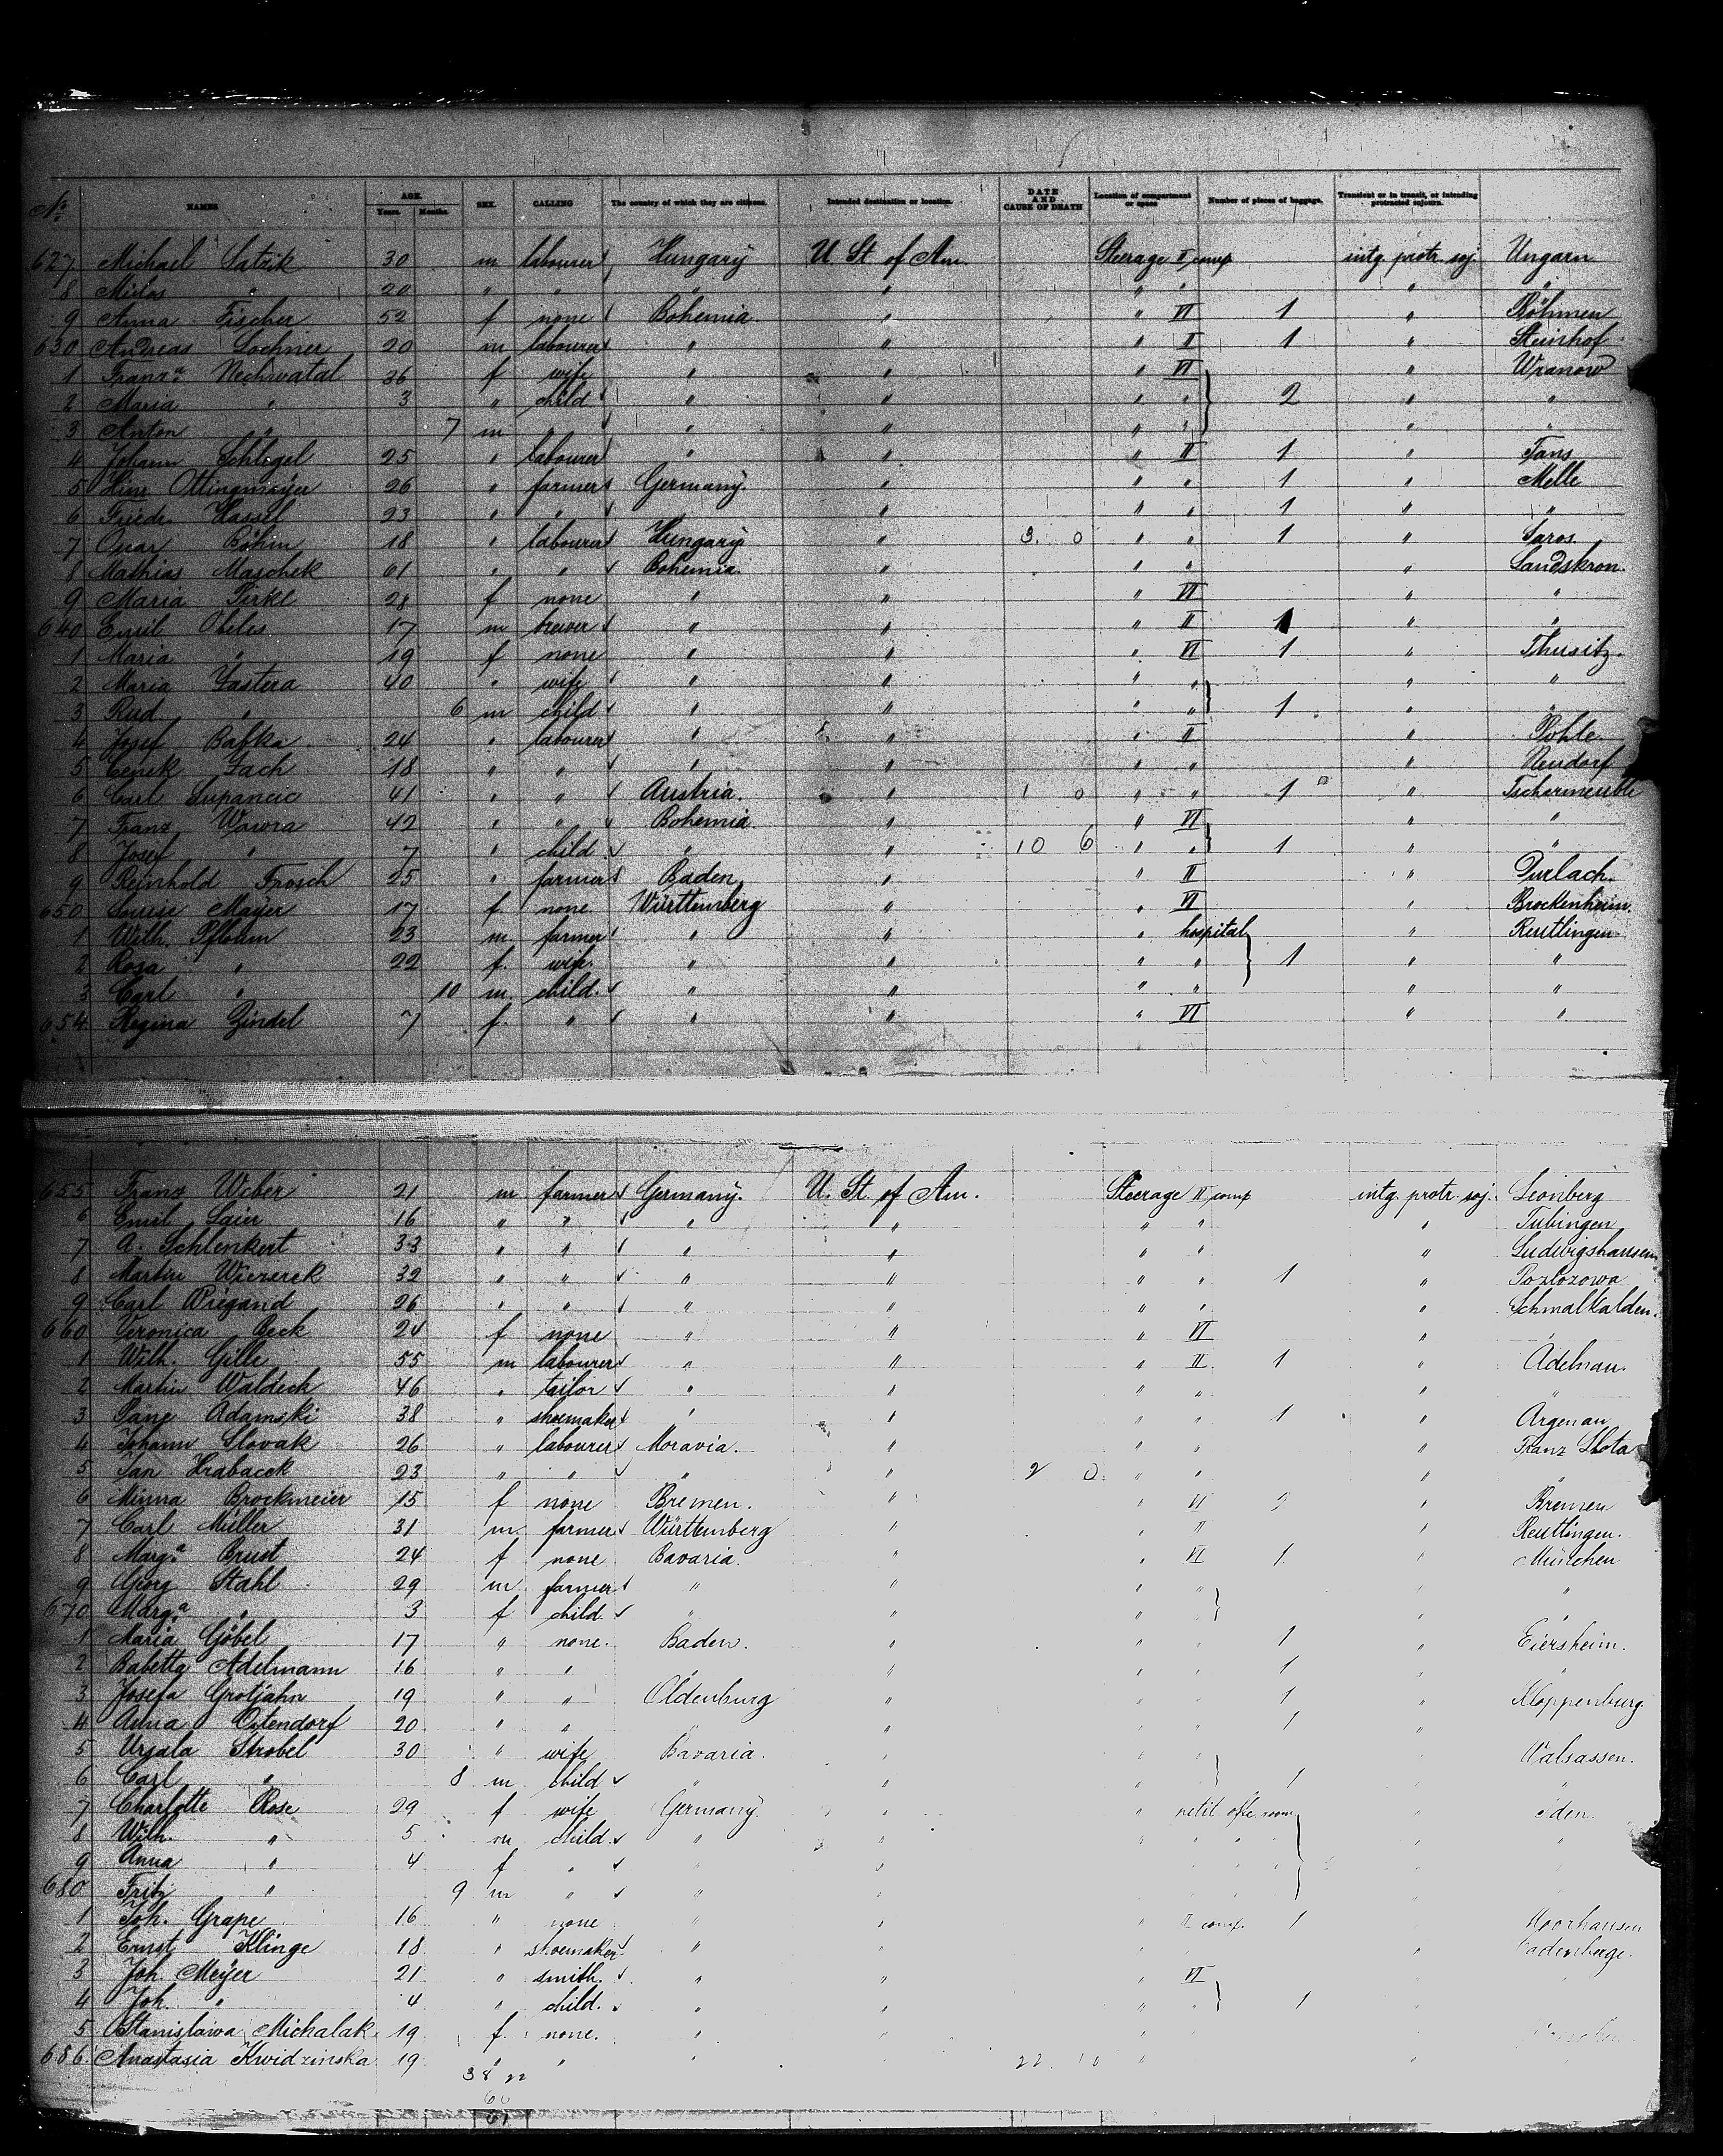 No. NAMES AGE. Years. Months. SEX. CALLING The country of which they are citizens. Intended destination or location. DATE AND CAUSE OF DEATH Location of compartment or space Number of pieces of baggage. Transient or in transit, or intending protracted sojourn.
627 Michael Satzik 30 m labourer Hungary U St of Am. Steerage II comp intg protr. soj. Ungarn
8 " 20 " " " " " " " "
9 Anna Fischer 52 f none Bohemia. " " VI 1 " Böhmen
630 Andreas Lochner 20 m labourer " " " II 1 " Steinhof
1 Franz.a Nechwatal 36 f wife " " " VI " Wranow
2 Maria " 3 " child " " " " 2 " "
3 Anton " 7 m " " " " " " "
4 Johann Schlegel 25 " labourer " " " II 1 " Taus
5 Hinr Ottingmeyer 26 " farmer Germany. " " " 1 " Melle
6 Friedr. Hassel 23 " " " " " " 1 " "
7 Oscar Böhm 18 " labourer Hungary " 3. 0 " " 1 " Saros
8 Mathias Maschek 61 " " Bohemia. " " " " Landskron.
9 Maria Pirkl 28 f none " " " VI " "
640 Emil Obeles 17 m brewer " " " II 1 " "
1 Maria " 19 f none " " " VI 1 " Thusitz.
2 Maria Zastera 40 " wife " " " " " "
3 Rud " 6 m child " " " " 1 " "
4 Josef Bafka 24 " labourer " " " II " Pohle.
5 Cenek Zach 18 " " " " " " " Neudorf
6 Carl Supancic 41 " " Austria. " 1 0 " " 1 " Tschermenble
7 Franz Wawra 42 " " Bohemia. " " VI " "
8 Josef " 7 " child " " 10 6 " " 1 " "
9 Reinhold Frosch 25 " farmer Baden " " II " Durlach.
650 Louise Mayer 17 f. none Württemberg " " VI " Brockenheim.
1 Wilh. Pflomm 23 m farmer " " " hospital " Reutlingen
2 Rosa " 22 f. wife. " " " " 1 " "
3 Carl " 10 m child. " " " " " "
654 Regina Zindel 7 f. " " " " VI " "
655 Franz Weber 21 m farmer Germany. U. St. of Am. Steerage II comp intg protr. soj. Leonberg
6 Emil Laier 16 " " " " " " " Tubingen
7 A. Schlenkert 33 " " " " " " " Ludwigshausen
8 Martin Wiezerek 32 " " " " " " 1 "
9 Carl Wiegand 26 " " " " " " " Schmalkalden.
660 Veronica Beck 24 f none " " " VI " "
1 Wilh. Gille 55 m labourer " " " II 1 " Adelnau.
2 Martin Waldeck 46 " tailor " " " " " "
3 Adamski 38 " shoemaker " " " " 1 " Argenau
4 Johann Slovak 26 " labourer Moravia. " " " " Franz Lhota
5 Jan Hrabacek 23 " " " " 2 0. " " " "
6 Minna Brockmeier 15 f none Bremen. " " VI 2 " Bremen
7 Carl Müller 31 m farmer Württemberg " " II " Reutlingen.
8 Marg.a Brust 24 f none Bavaria. " " VI 1 " München
9 Georg Stahl 29 m farmer " " " " " "
670 Marg.a " 3 f child " " " " "
1 Maria Göbel 17 " none. Baden. " " " 1 " Eiersheim.
2 Babetta Adelmann 16 " " " " " " 1 " "
3 Josefa Grotjahn 19 " " Oldenburg " " " 1 " Kloppenburg
4 Anna Ostendorf 20 " " " " " " 1 " "
5 Ursala Strobel 30 " wife Bavaria. " " " Walsassen.
6 Carl " 8 m child " " " " 1 "
7 Charlotte Rose 29 f wife Germany. " " petit offe room " Eden.
8 Wilh. " 5 m child " " " " " "
9 Anna " 4 f " " " " " "
680 Fritz " 9 m " " " " " "
1 Joh. Grape 16 " none " " " II comp. 1 Moorhausen
2 Ernst Klinge 18 " shoemaker " " " " " Cadenberge.
3 Joh. Meyer 21 " smith. " " " VI
4 Joh. " 4 " child. " " " " 1 "
5 Stanislawa Michalak 19 f. none. " " " "
686. Anastasia Kwidzinska 19 " " " " 22. 10 " "
38 22
60
61